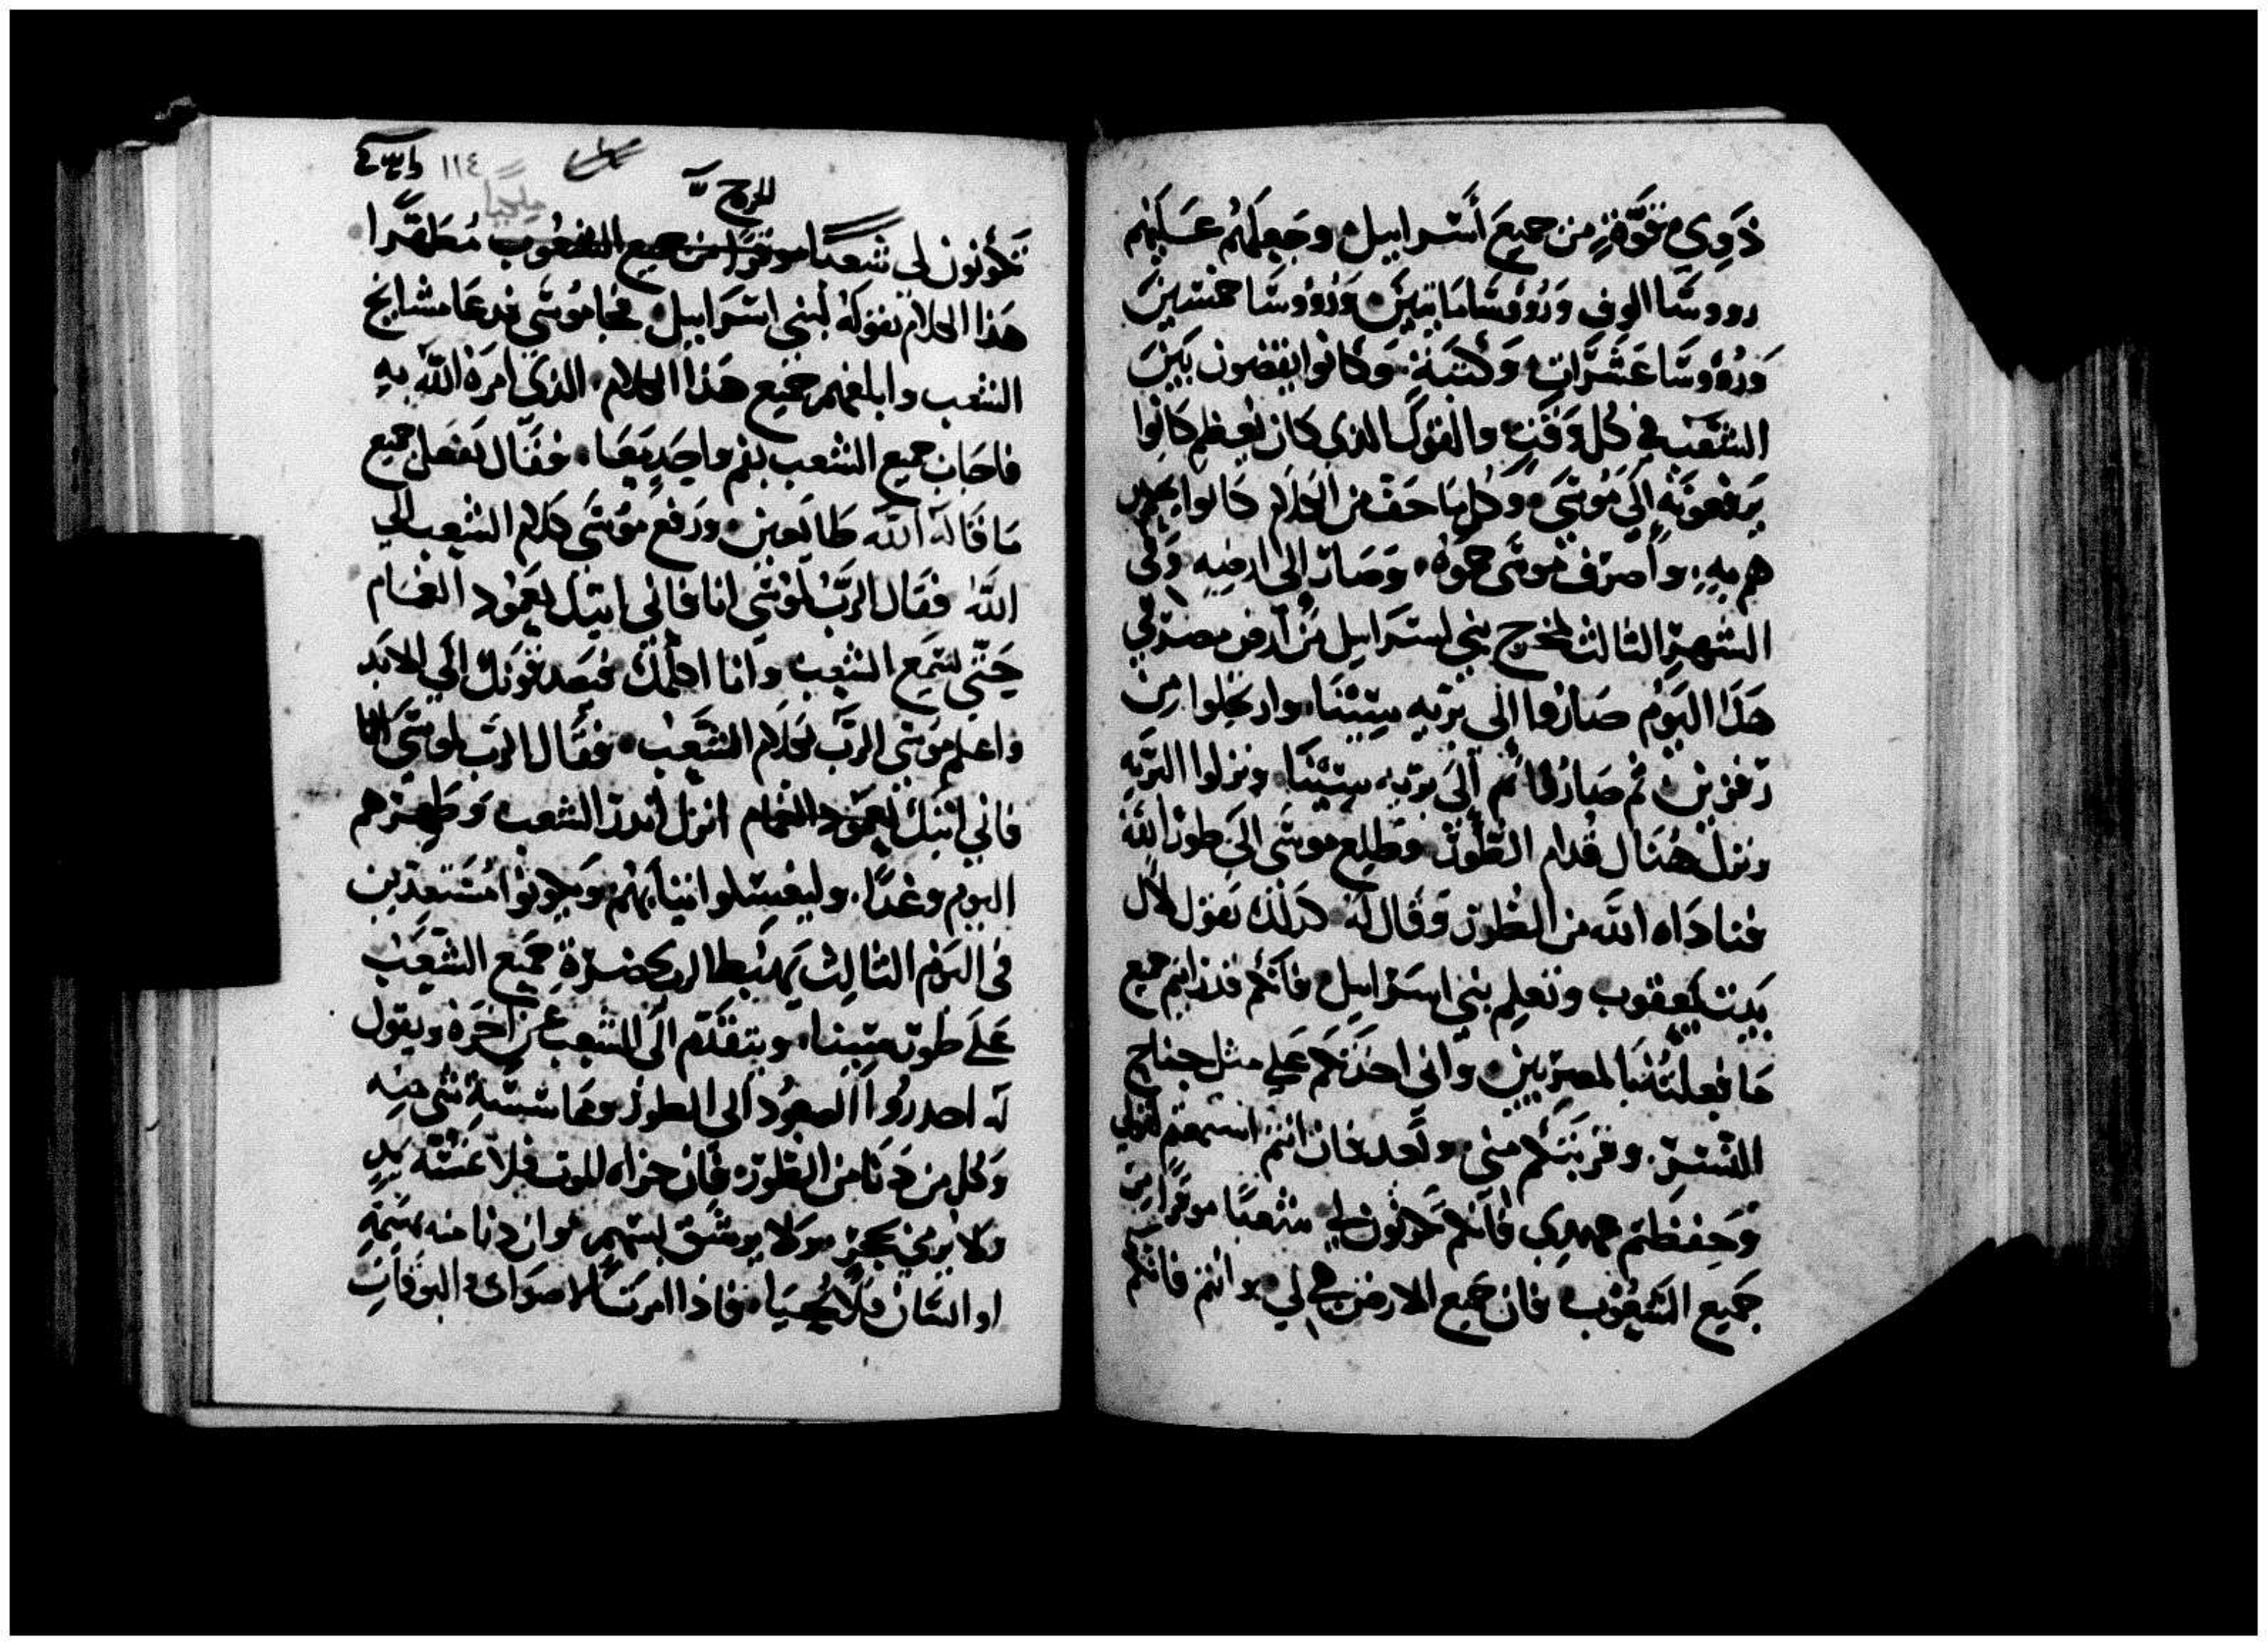 ذَوِي قوَّةٍ من جميعَ أسْرابيل وجَعلهُم عَليهم
رووسَّا الوف وَرُؤوسَّا مايتينَ وَرُؤوسَّا خمسينَ
وَرُؤوسَّا عَشَرَاتٍ وَكتبَةٍ وَكانوا يقضون بَينَ
الشعْب في كل وَقتٍ والقول الذي كان يعظم كانوا
يَرفعونَهِ إلَي مُوسَي وَكل ما خف من الكلام كانوا
هم بهِ وأصرَف موسَي حموُهُ وَصَار إلى ارضِهِ وَفي
الشهرِ الثالث لمخرج بني اسرَابيل من أرض مصرَ في
هذا اليَوْم صَارُوا إلى بَرّيه سِيْنَا وارتحلوا مِن
رَفزين ثم صَارُوا إلَى بَرّيه سِيْنَا ونزلوا البَرّيه
ونزل هُنَال قُدام الطُّوْر وَطلع موسَى الَى طور اللهَ
فناداه اللَّه من الطُور وَقال له كذلك تقول لال
بَيت يَعقوب وتعلِم بني اسرَابيل فانكم قد رايتم جميع
مَا فعلتُه بالمصرِيين واني اخذتكم عَلي مثل جناح
النسرِ وقربتكم مني وبَعد فان انتم استمعتم لقولي
وَحِفظتم عهدِي فانكم تكونون لي شعبًا موقرًا مِن
جَميع الشعُوب فان جَميع الارض هي لي وانتم فانكم
١١٤
للرح
تكونون لي شعبًا موقرًا من جميع الشعُوب مُطهَّرًا
هَذا الكلام تقوله لبني اسْرَابيل فجا مُوسَي فدعَا مشايخ
الشعب وابلغهم جَميع هَذا الكلام الذي امرَهُ اللَّه بهِ
فاجابَ جميع الشعب بفم واحَدٍ مَعًا فقَال نَفعَل جميع
مَا قَاله اللَّه طايعين ورَفع مُوْسَي كلام الشعب الَي
اللَّه فقال الرَّب لموْسَي انا فاني اتيك بعَمُود الغمَام
حَتّي يسمَع الشعب وانا اكلمك فيصَدقونَك إلَي الابَد
واعلم مُوسَي الرَّب بكلام الشعْب فقَال الرَّب لموسَي انا
فاني اتيك بعَمُود الغمام انزل انذر الشعب وَطهرْهم
اليوم وغدًا وليغسِلوا ثيابَهُم وَيكونوا مُستعدين
في اليَوم الثالِث يَهبُط الرب بحضرَةِ جَميع الشعبَ
عَلَى طوْر سيْنا ويتقدَّم الَى الشعب عن اخرَهْ ويقول
له احدرُوا الصعُود إلى الطوْر ومماسَّة شي منه
وَكل من دَنَا من الطُور فان جزاه الموت فلا تمسَّه يَدٍ
ولا يرمي بحجَرٍ ولا يرشق بسَهم وان دنا منه بهَيمَةٍ
او انسان فلا يَحيَا فاذا امرت الاصوَات البوقات